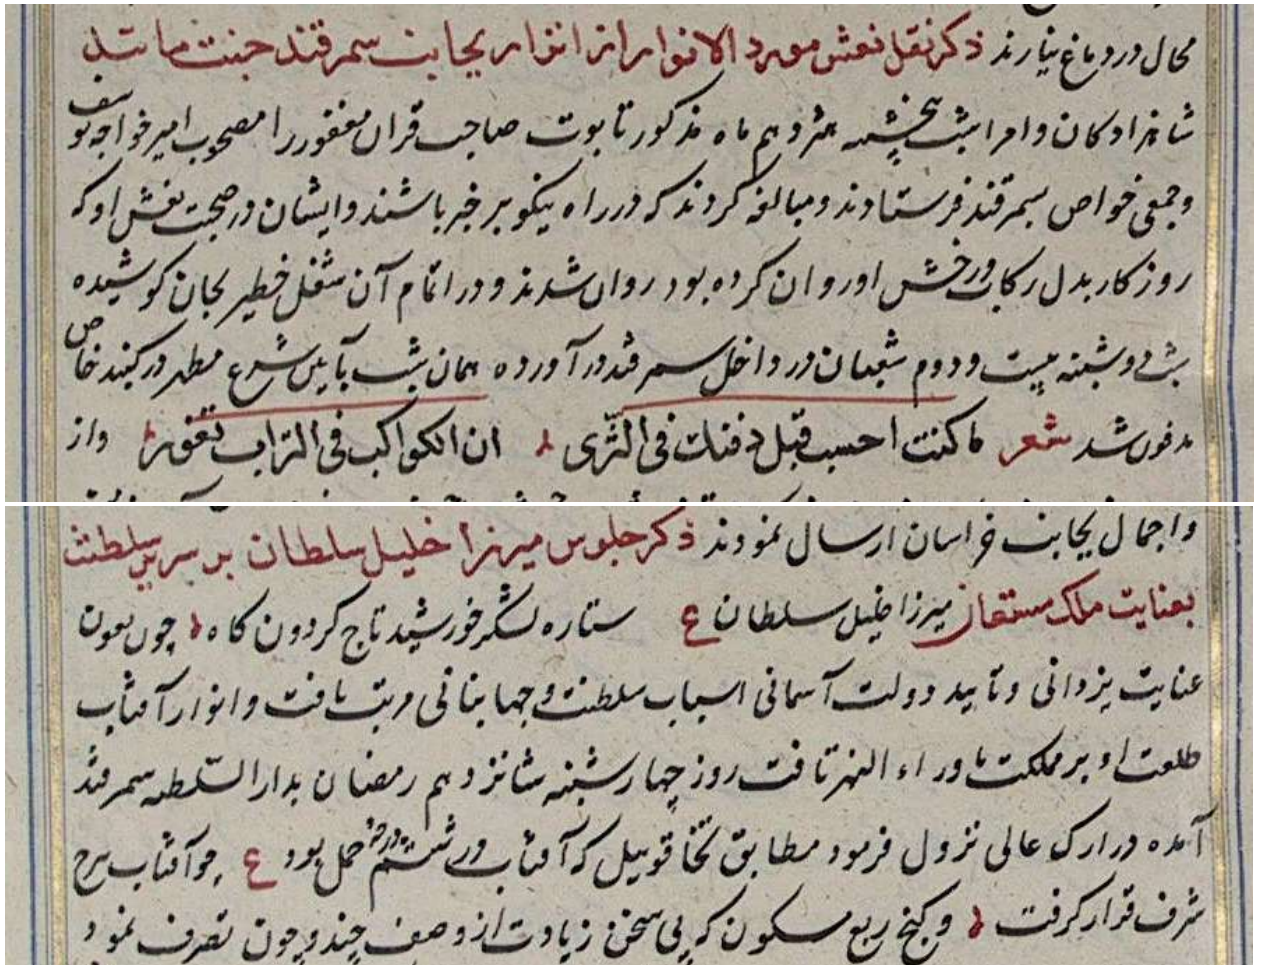 محال در دماغ نیارند ذکر نقل نعش مورد الانوار از انزار بجانب سمرقند جنت مانند
شاهزادکان و امرا شب پنجشنبه هژدهم ماه مذکور تابوت صاحب قران مغفور را مصحوب امیر خواجه یوسف
و جمعی خواص بسمرقند فرستادند و مبالغه کردند که در راه نیکو بر خبر باشند و ایشان در صحبت نعش او که
روزکار بدل رکاب رخش او روان کرده بود روان شدند و در اتمام آن شغل خطیر بجان کوشیده
شب دوشبنه بیست و دوم شعبان در داخل سمرقند درآورده همان شب بآیین شرع مطهر در کنبد خاص
مدفون شد شعر ما کنت احسب قبل دفنک فی الثّری ان الکواکب فی التراب تغور واز
واجمال بجانب خراسان ارسال نمودند ذکر جلوس میرزا خلیل سلطان بر سریر سلطنت
بعنایت ملک مستعان میرزا خلیل سلطان ع ستاره لشکر خورشید تاج کردون کاه چون بعون
عنایت یزدانی و تأیید دولت آسمانی اسباب سلطنت و جهانبانی مرتب یافت و انوار آفتاب
طلعت او بر مملکت ماوراء النهر تافت روز چهارشنبه شانزدهم رمضان بدار السّلطنه سمرقند
آمده در ارک عالی نزول فرمود مطابق تخاقوییل که آفتاب در ششم درجه حمل بود ع چو آفتاب ببرج
شرف قرار کرفت و کنج ربع مسکون که بی سخن زیادت از وصف چند و چون تصرف نمود